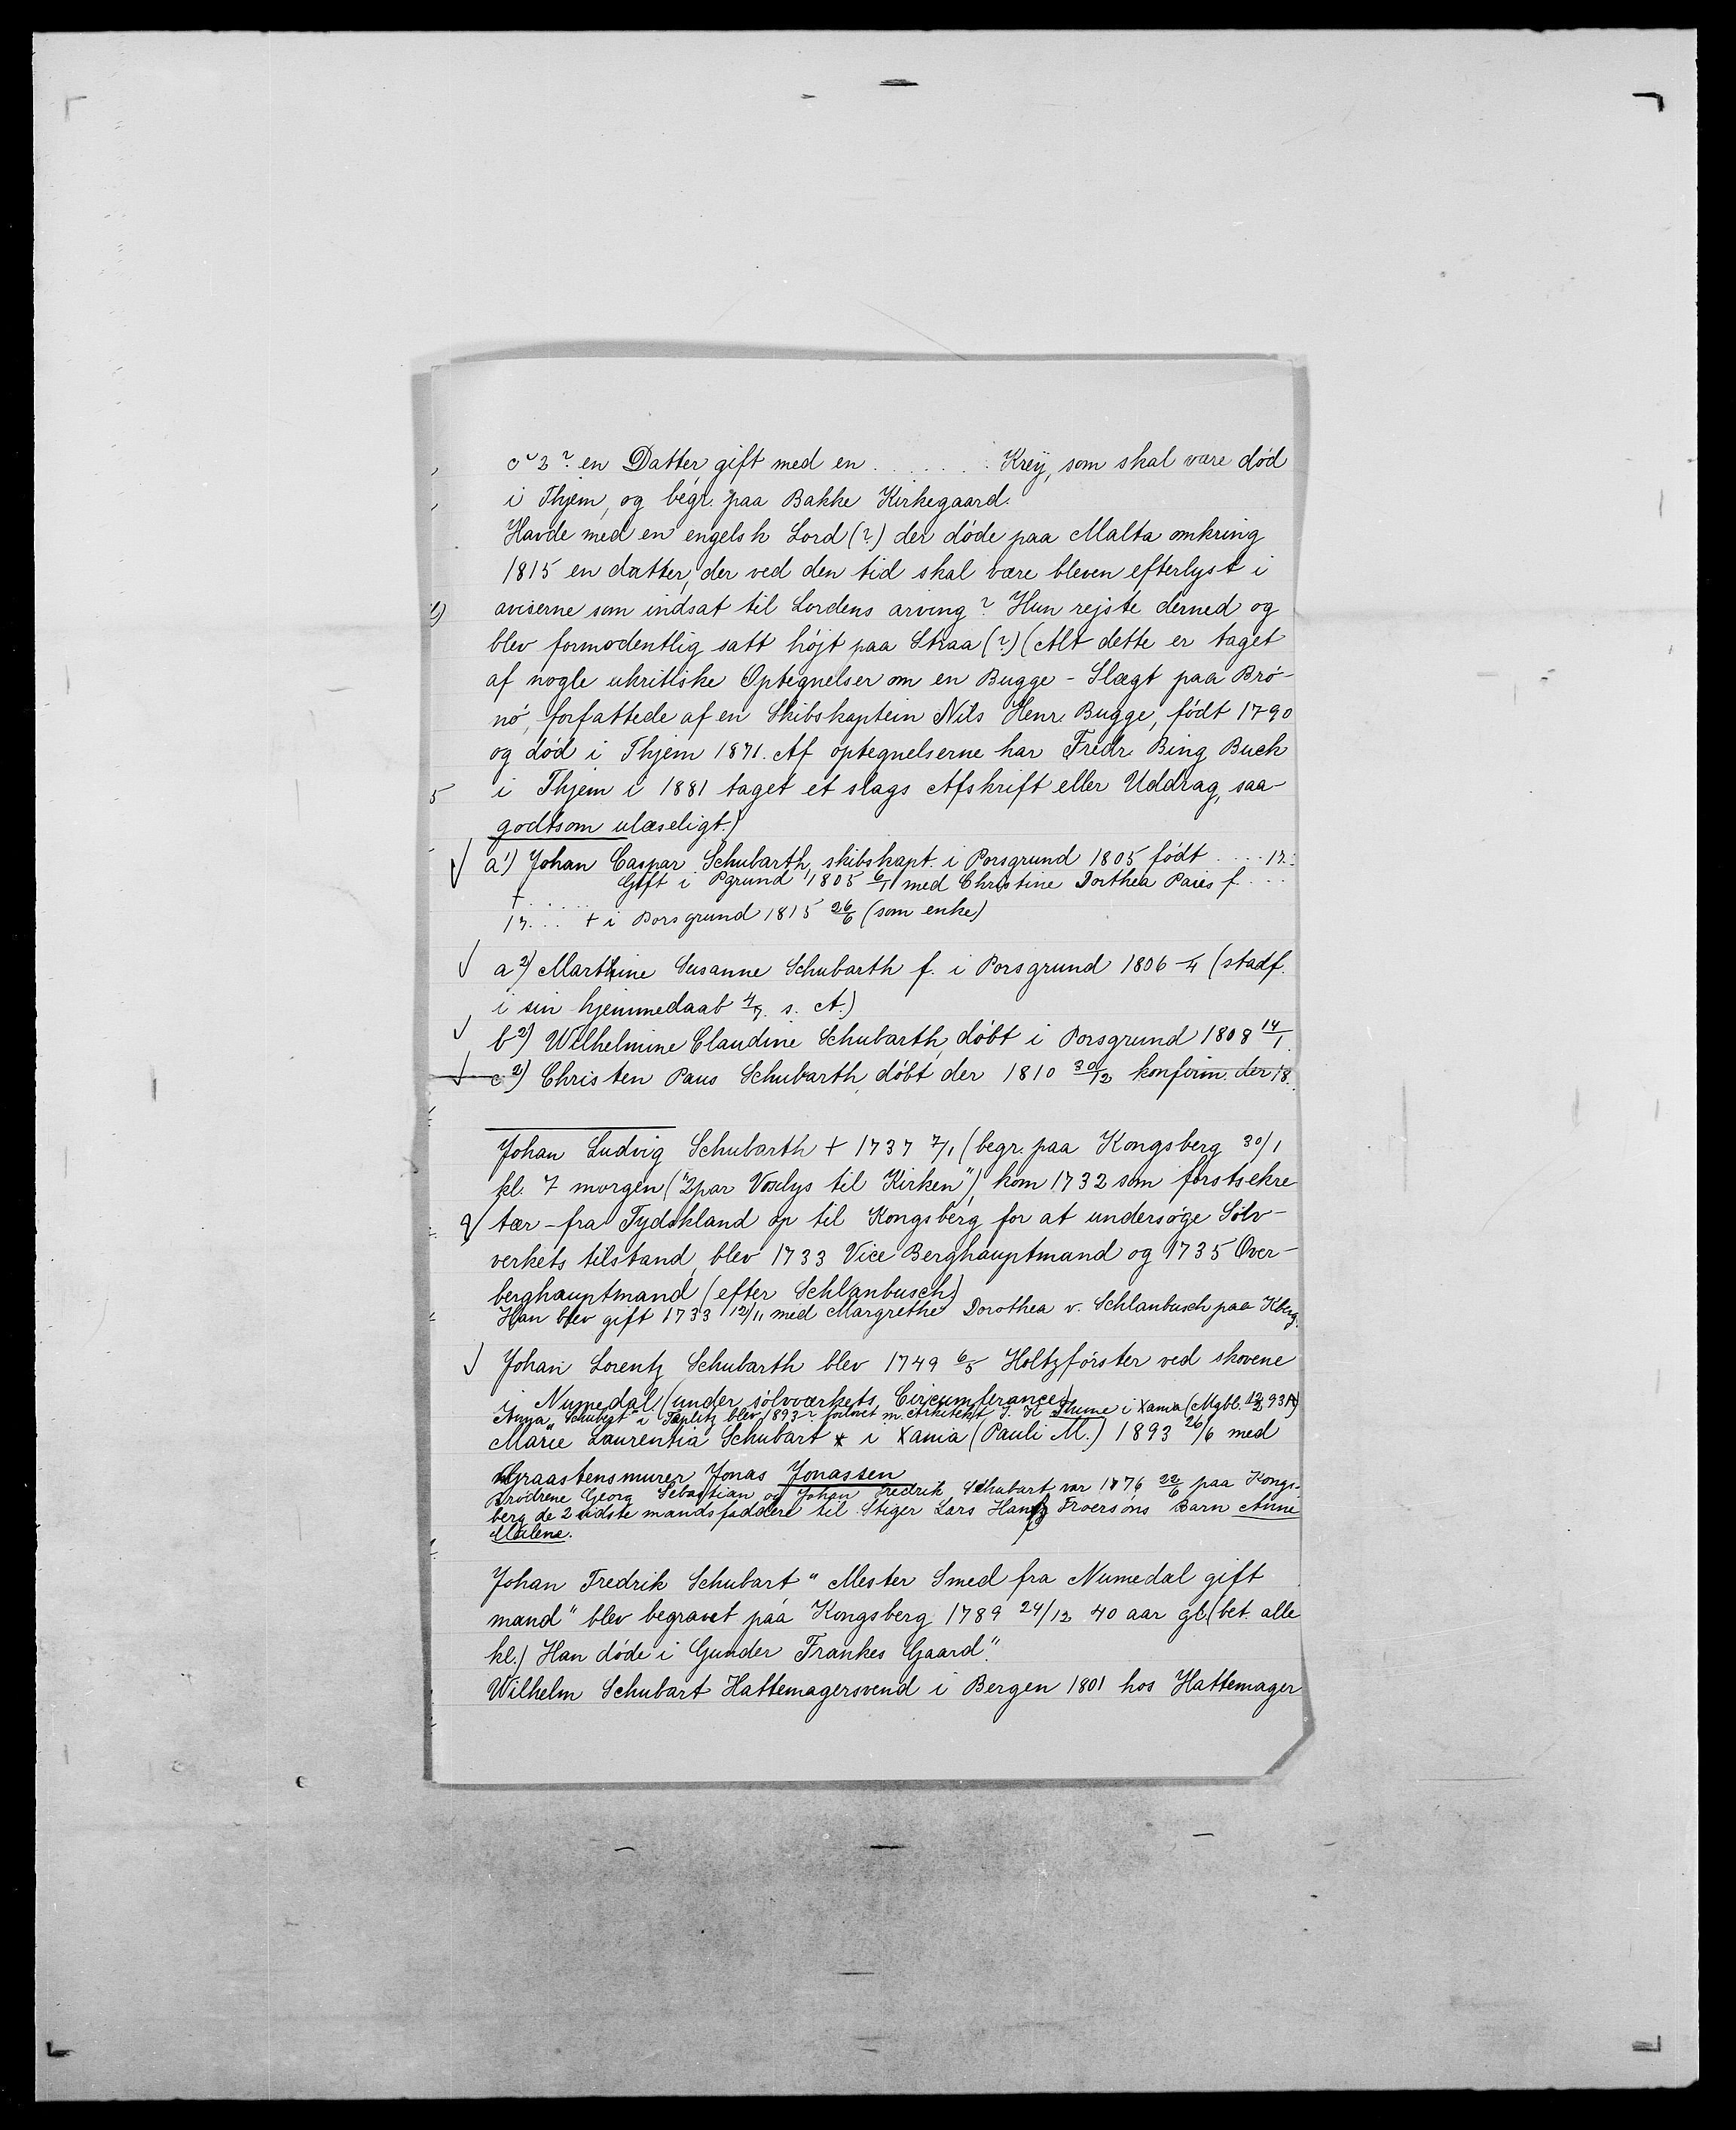 en Datter, gift med en . . . . . . . Kreÿ, som skal være død
i Thjem, og begr. paa Bakke Kirkegaard.
Havde med en engelsk Lord (?) der døde paa Malta omkring
1815 en datter, der ved den tid skal være bleven efterlyst i
aviserne som indsat til Lordens arving? Hun rejste derned og
blev formodentlig satt højt paa Straa (?) (Alt dette er taget
af nogle ukritiske Optegnelser om en Bugge - Slægt paa Brø-
nø, forfattede af en Skibskaptein Nils Henr. Bugge, født 1790
og død i Thjem 1871. Af optegnelserne har Fredr. Bing Buck
i Thjem i 1881 taget et slags Afskrift eller Uddrag, saa-
godtsom ulæseligt.)
a1) Johan Caspar Schubarth, skibskapt. i Porsgrund 1805 født . . . . 17..
Gift i Pgrund 1805 6/1 med Christine Dorthea Paus f. . . .
17. . . . + i Porsgrund 1815 26/6 (som enke)
a2) Marthine Susanne Schubarth f. i Porsgrund 1806 (stadf.
i sin hjemmedaab s. A.)
b2) Wilhelmine Claudine Schubarth, døbt i Porsgrund 1808 14/1.
c2) Christen Paus Schubarth, døbt der 1810 30/12 konfirm. der 18.
Johan Ludvig Schubarth + 1737 7/1 (begr. paa Kongsberg 30/1
kl. 7 morgen ("2 par Voxlys til Kirken"), kom 1732 som forstsekre
tær - fra Tydskland op til Kongsberg for at undersøge Sølv-
verkets tilstand, blev 1733 Vice Berghauptmand og 1735 Over-
berghauptmand (efter Schlanbusch)
Han blev gift 1733 12/11 med Margrethe Dorothea v. Schlanbusch paa Kberg.
Johan Lorentz Schubarth blev 1749 6/5 Holtzförster ved skovene
i Numedal (under sølvværkets Circumferancer)
Anna Schubart i Tøplitz blev 1893 forlovet m. Arkitekt J. K. Thume i Xania (Mgbl. 93 A)
Marie Laurentia Schubart i Xania (Pauli M.) 1893 26/6 med
Graastensmurer Jonas Jonassen
Brødrene Georg Sebastian og Johan Fredrik Schubart var 1776 22/6 paa Kongs-
berg de 2 sidste mandsfaddere til Stiger Lars Froersøns Barn Anne
Malene.
Johan Fredrik Schubart "Mester Smed fra Numedal gift
mand" blev begravet paa Kongsberg 1789 24/12 40 aar gl. (bet. alle
kl.) Han døde i Gunder Frankes Gaard".
Wilhelm Schubart Hattemagersvend i Bergen 1801 hos Hattemager